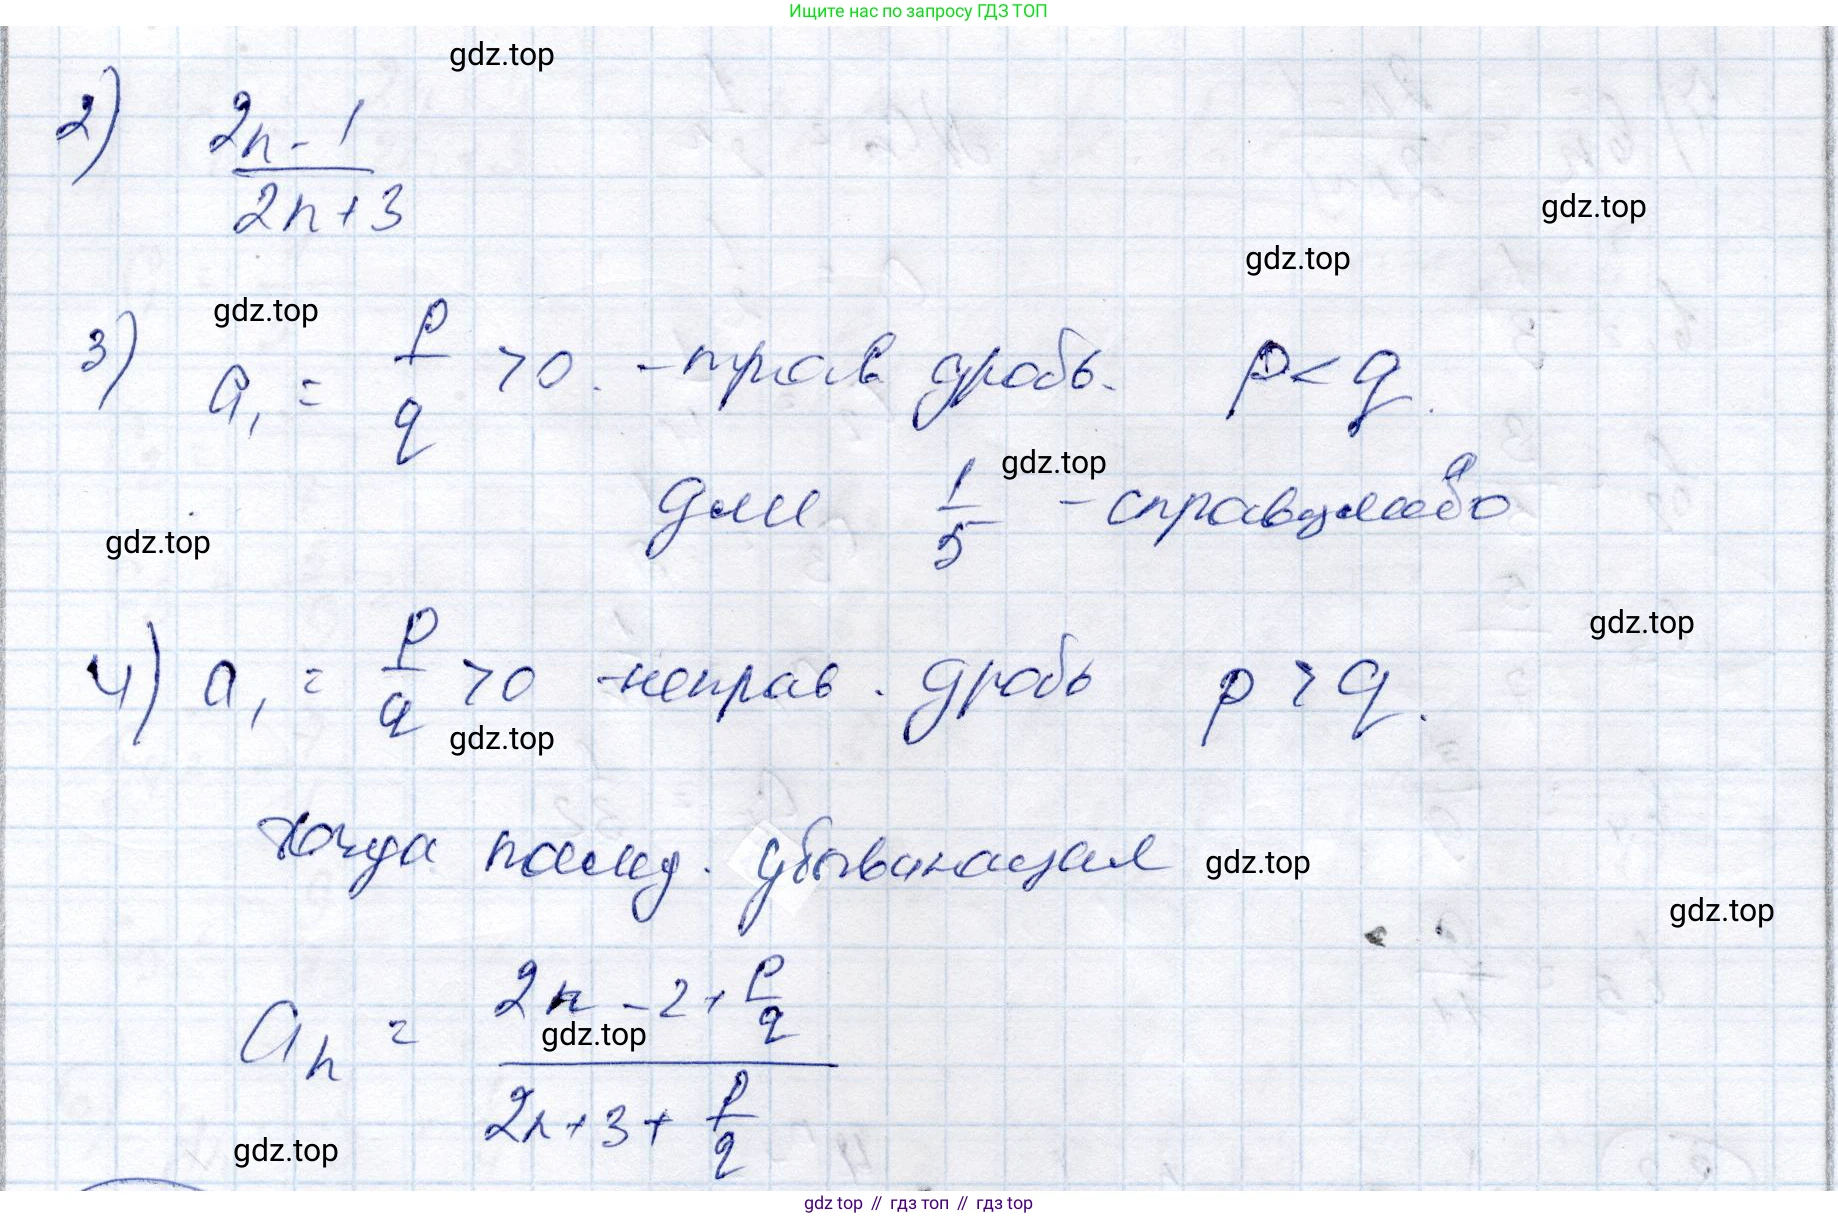 Ищите нас по запросу ГДЗ ТОП
gdz.top
2) (2n - 1)/(2n + 3)
gdz.top
gdz.top
gdz.top
3) a₁ = p/q > 0. - прав дробь. p < q.
gdz.top
для 1/5 - справедливо
gdz.top
gdz.top
4) a₁ = p/q > 0 - неправ. дробь p > q.
gdz.top
тогда послед. убывающая
gdz.top
gdz.top
aₙ = (2n - 2 + p/q)/(2n + 3 + p/q)
gdz.top
gdz.top
gdz top // гдз топ // гдз top